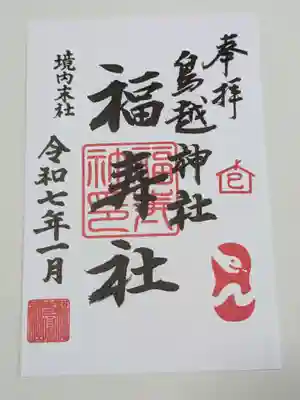 奉拝
鳥越神社
福寿社
境内末社
令和七年一月